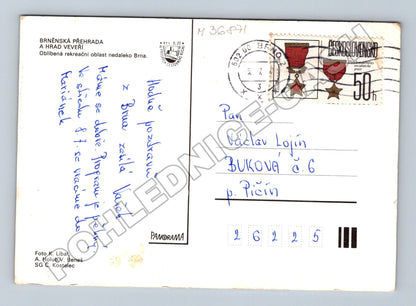 BRNĚNSKÁ PŘEHRADA
A HRAD VEVEŘÍ
Oblíbená rekreační oblast nedaleko Brna.
M 36871
BRNO 2
ČESKOSLOVENSKO
50 h
Hodně pozdravů
z Brna zasílá Vašek
Máme se dobře. Program je pěkný
Ve středu 8.7. se vracíme do
Pan
Václav Lojín
BUKOVÁ č. 6
p. Pičín
26225
Foto K. Líbal,
A. Holub, V. Beneš
SG C. Kostelec
PANORAMA
POHLEDNICE-CASH